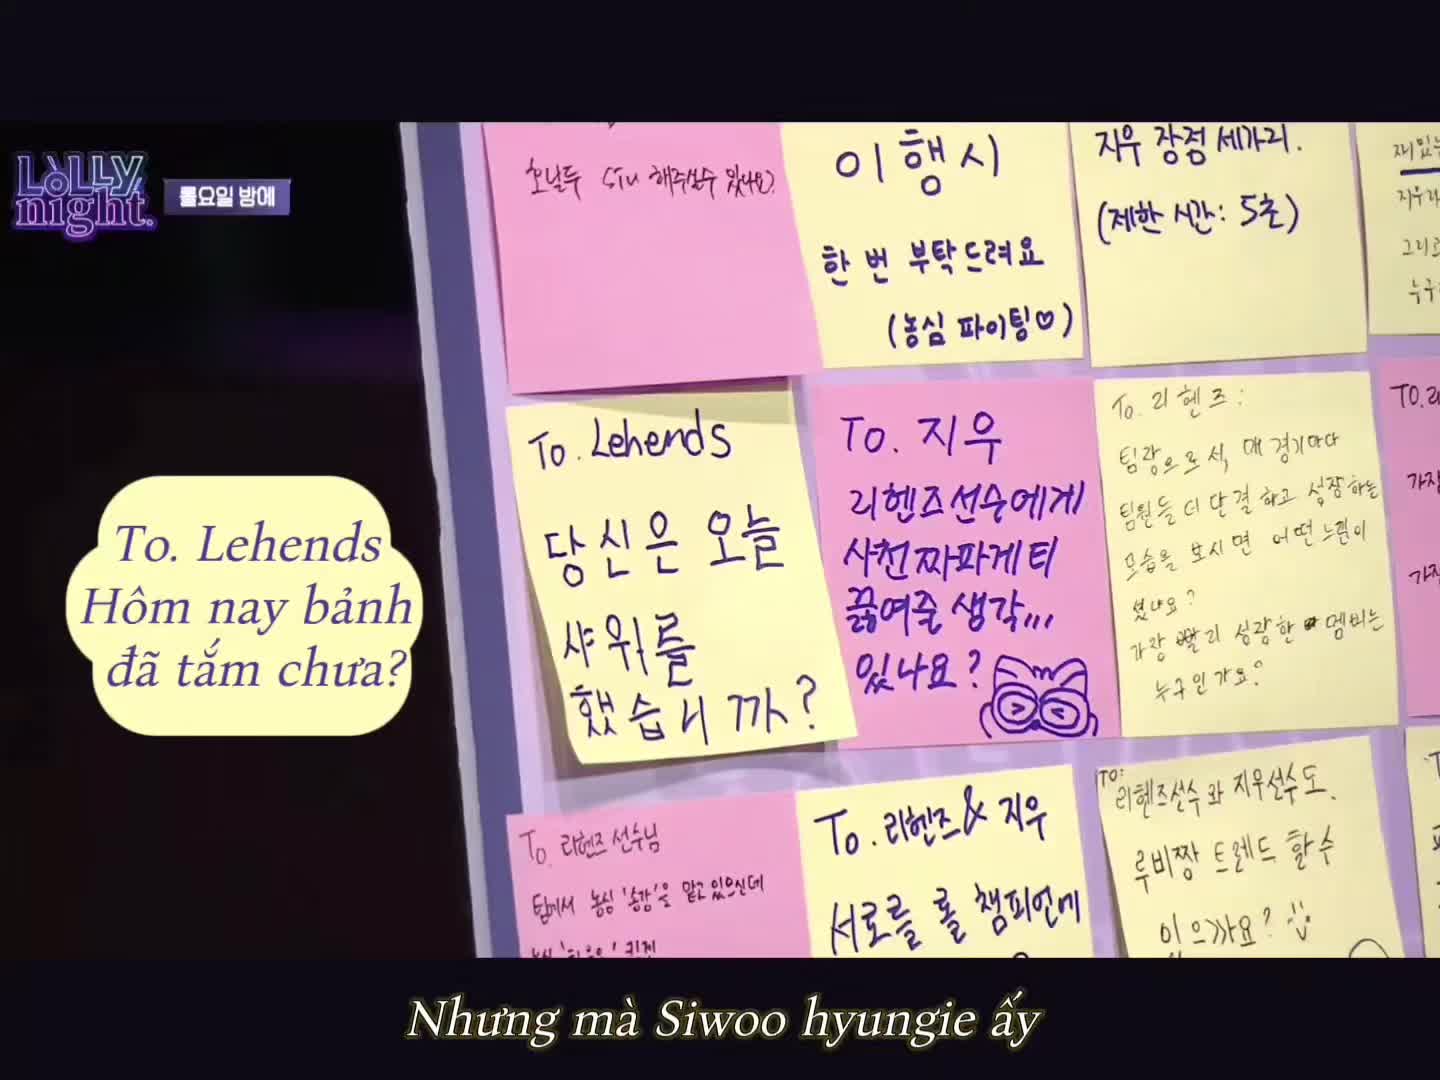 LOLLY
night.
롤요일 밤에
이행시
한 번 부탁드려요
(농심 파이팅♡)
지우 장점 세가리.
(제한 시간: 5초)
To. Lehends
당신은 오늘
샤워를
했습니까?
To. 지우
리헨즈선수에게
사천짜파게티
끓여줄 생각...
있나요?
To. 리헨즈:
팀장으로서, 매 경기마다
팀원들 더 단결하고 성장하는
모습을 보시면 어떤 느낌이
셨나요?
가장 빨리 성장한 멤버는
누구인가요?
To. 리헨즈 선수님
팀에서 농심 '송강'을 맡고 있으신데
To. 리헨즈 & 지우
서로를 롤 챔피언에
TO:
리헨즈선수와 지우선수도
루비짱 트렌드 할수
있으까요?
To. Lehends
Hôm nay bảnh
đã tắm chưa?
Nhưng mà Siwoo hyungie ấy